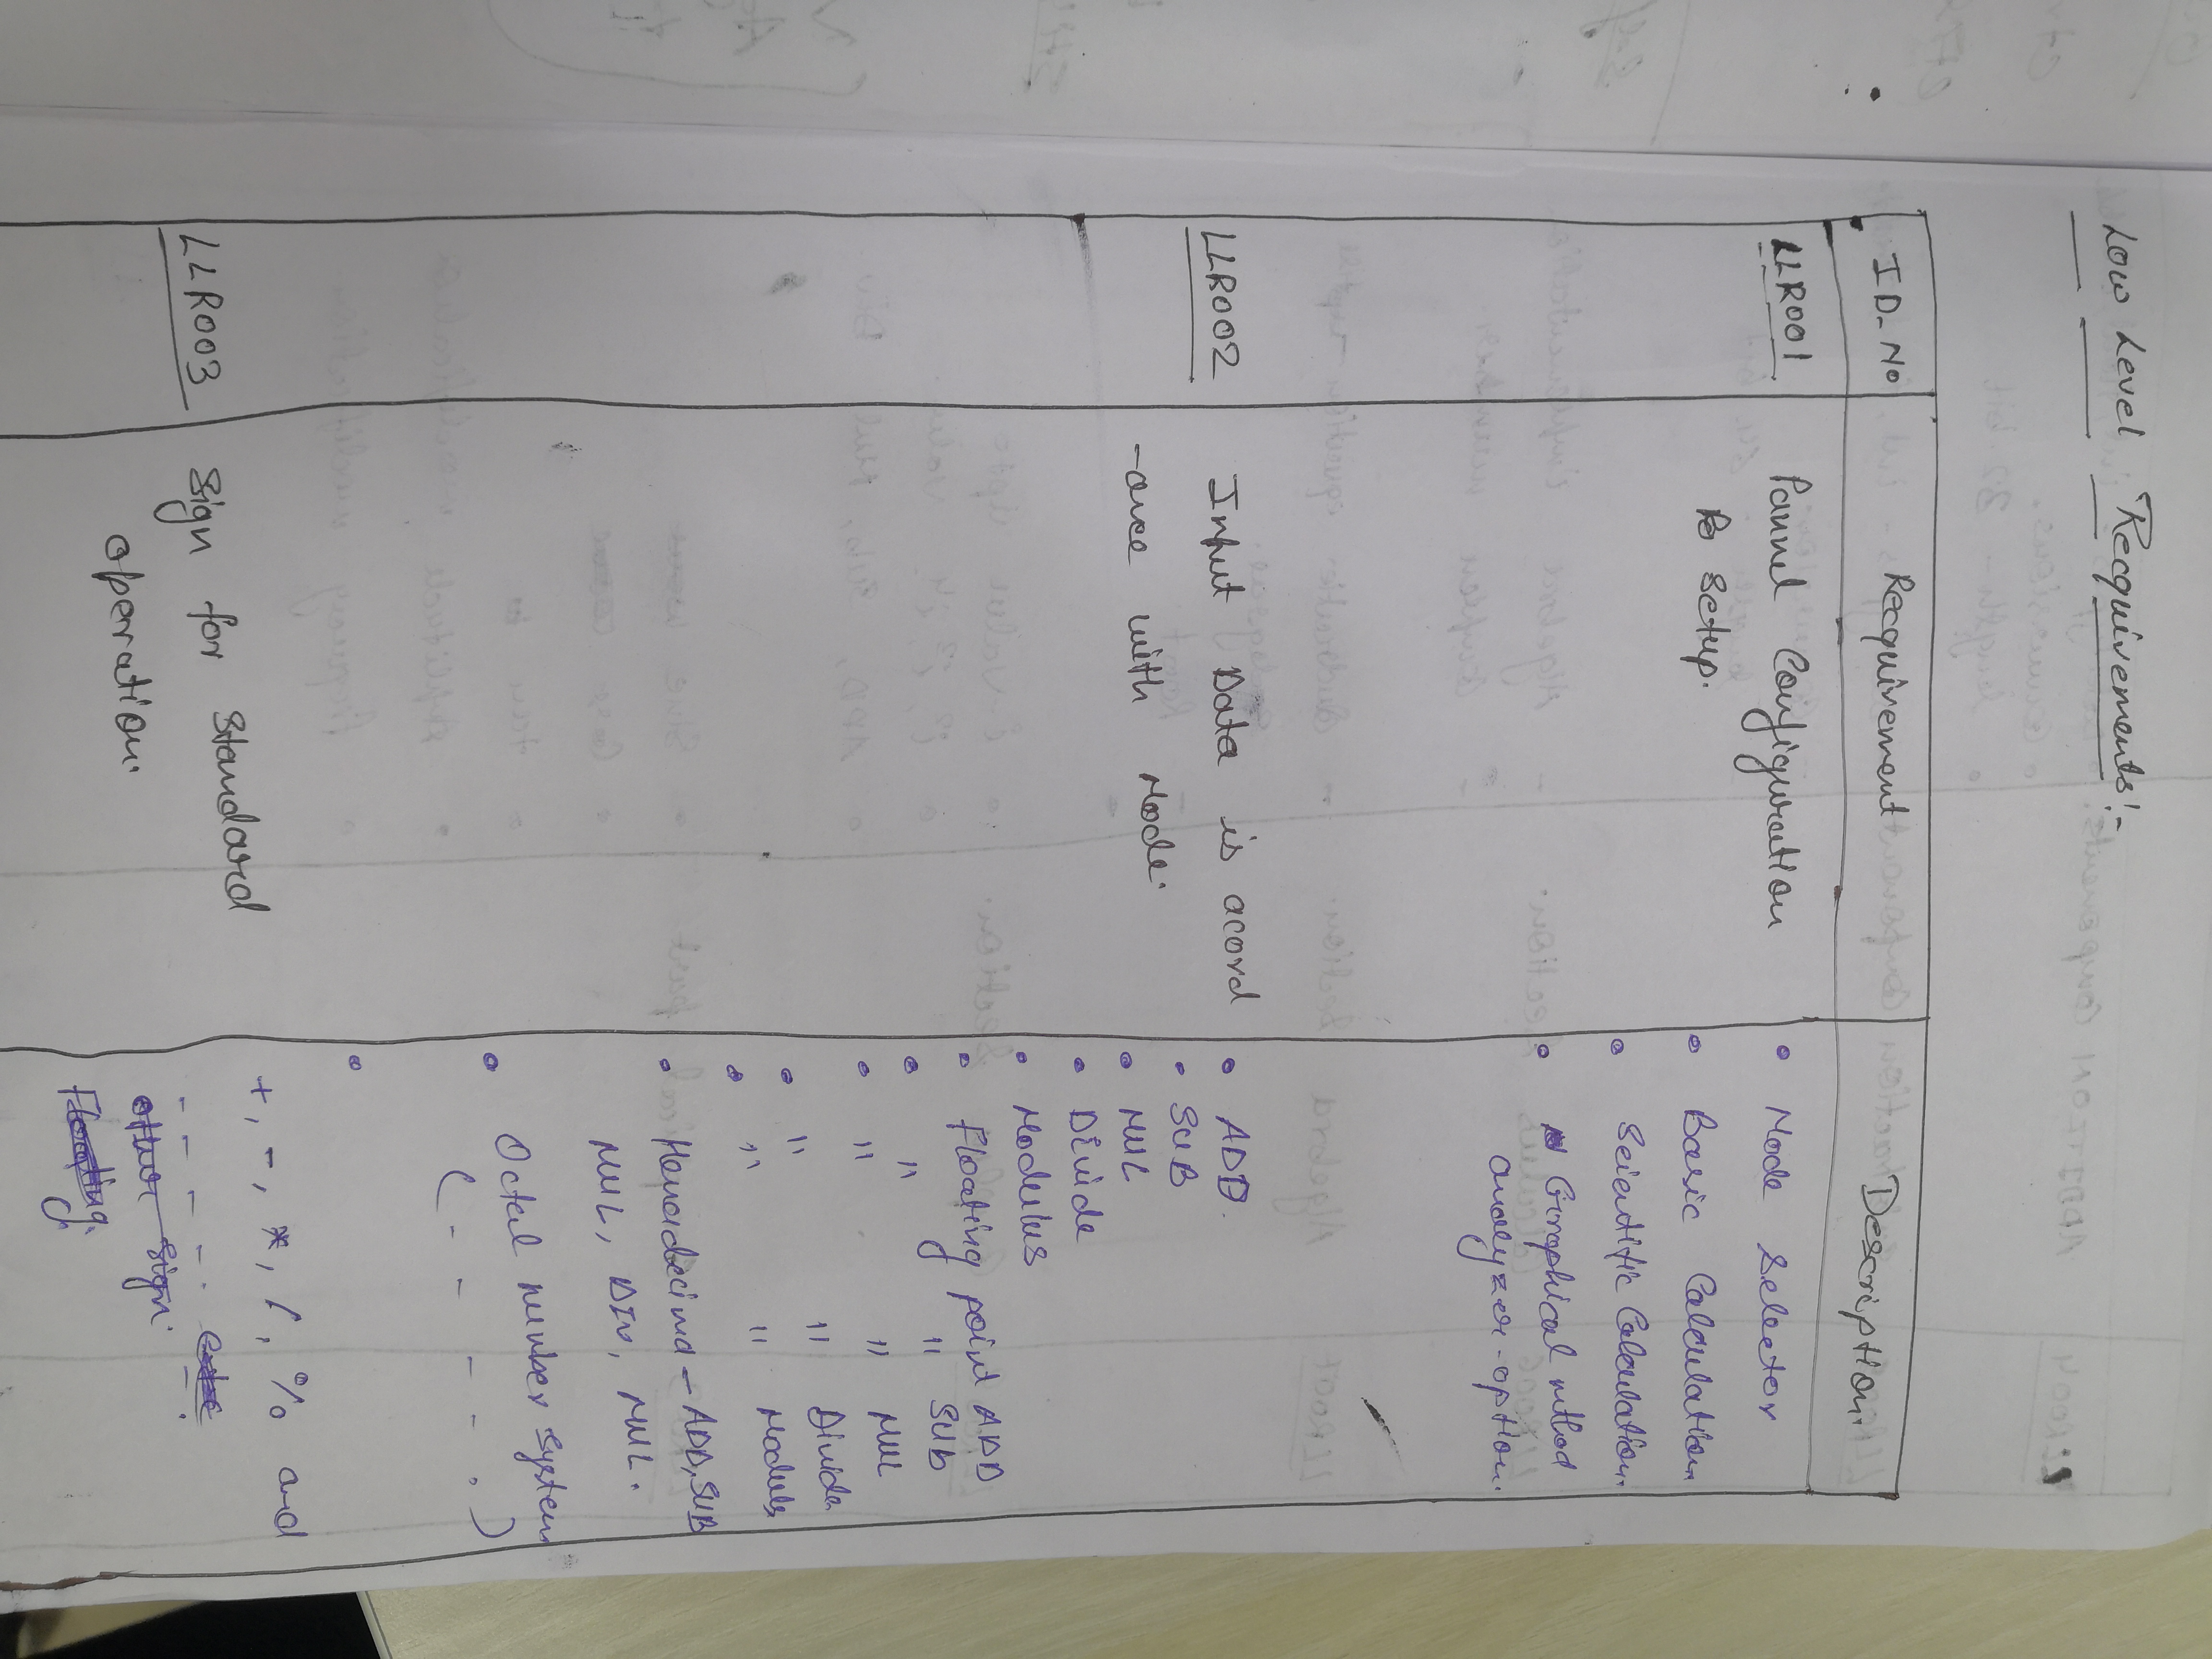 Low Level Recquirements:-
ID-No Recquirement Description.
LLR001 Pannel Configuration
Setup.
• Mode Selector
• Basic Calculation
• Scientific Calculation.
• Graphical mthod
analyzer-option.
LLR002 Input Data is acord
-ance with Mode.
• ADD.
• SUB
• MUL
• Divide
• Modulus
• Floating point ADD
• " " SUb
• " " MUL
• " " Divide
• " " Moduls
• Hexadecimal - ADD, SUB
MUL, DIV, MUL.
• Octal number system
( - - - - . )
•
LLR003 Sign for Standard
operation.
+, -, *, /, % and
- - - - - .
other sign.
Floating.